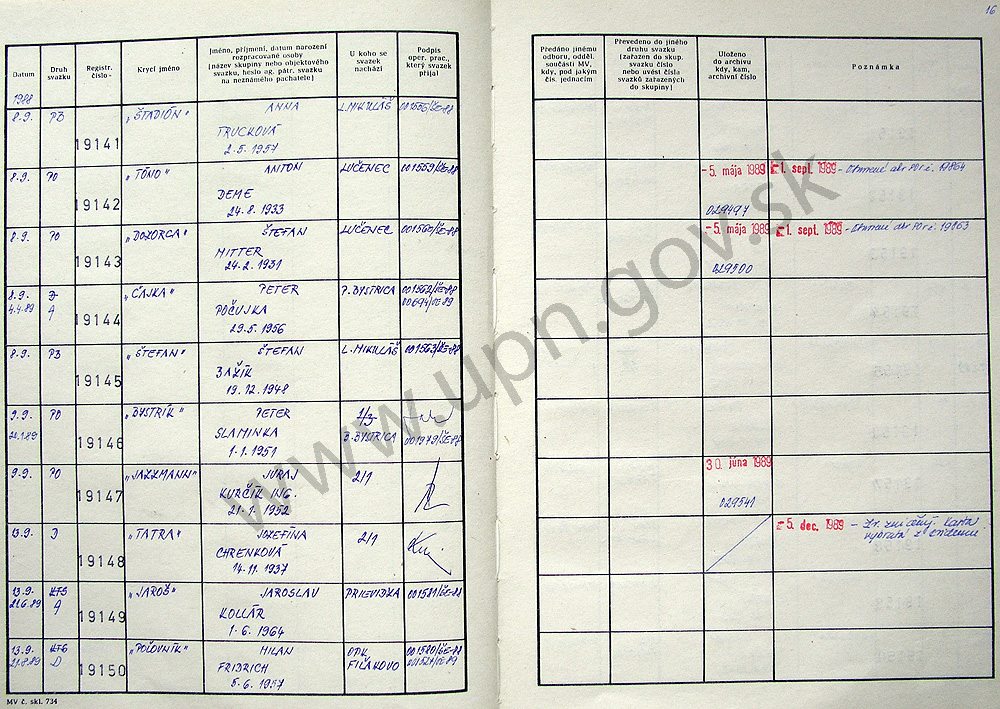 16
Datum
Druh svazku
Registr. číslo
Krycí jméno
Jméno, příjmení, datum narození
rozpracované osoby
(název skupiny nebo objektového
svazku, heslo ag. pátr. svazku
na neznámého pachatele)
U koho se
svazek
nachází
Podpis
oper. prac.,
který svazek
přijal
Předáno jinému
odboru, odděl.
součásti MV,
kdy, pod jakým
čís. jednacím
Převedeno do jiného
druhu svazku
(zařazen do skup.
svazku číslo
nebo uvést čísla
svazků zařazených
do skupiny)
Uloženo
do archivu
kdy, kam,
archivní číslo
Poznámka
1988
8.9. PO 19141 „ŠTADIÓN" ANNA L. MIKULÁŠ
TRUCKOVÁ
2.5.1957
8.9. PO 19142 „TÓNO" ANTON LUČENEC 001559/ŠE-88 -5. mája 1989 -1. sept. 1989
DEME
24.8.1933 029497
8.9. PO 19143 ŠTEFAN LUČENEC 001560/ŠE-88 -5. mája 1989 -1. sept. 1989
MITTER
24.2.1931 029500
8.9. 19144 „ČAJKA" PETER P. BYSTRICA 001562/ŠE-88
4.4.89 A POČUJKA
29.5.1956
8.9. 19145 „ŠTEFAN" ŠTEFAN L. MIKULÁŠ 001563/ŠE-88
BAŽÍK
19.12.1948
9.9. PO 19146 „BYSTRÍK" PETER 1/3
SLAMINKA B. BYSTRICA
1.1.1951
9.9. PO 19147 „JAZZMANN" JURAJ 2/1 30. júna 1989
KURČÍK ING. 029541
21.1.1952
13.9. D 19148 „TATRA" JOZEFÍNA 2/1 -5. dec. 1989
CHRENKOVÁ
14.11.1937
13.9. KTS 19149 „JAROŠ" JAROSLAV PRIEVIDZA 001581/ŠE-88
21.6.89 A KOLLÁR
1.6.1964
13.9. KTS 19150 „POĽOVNÍK" MILAN OPK 001580/ŠE-88
D FRIDRICH FIĽAKOVO
5.6.1957
MV č. skl. 734
www.upn.gov.sk